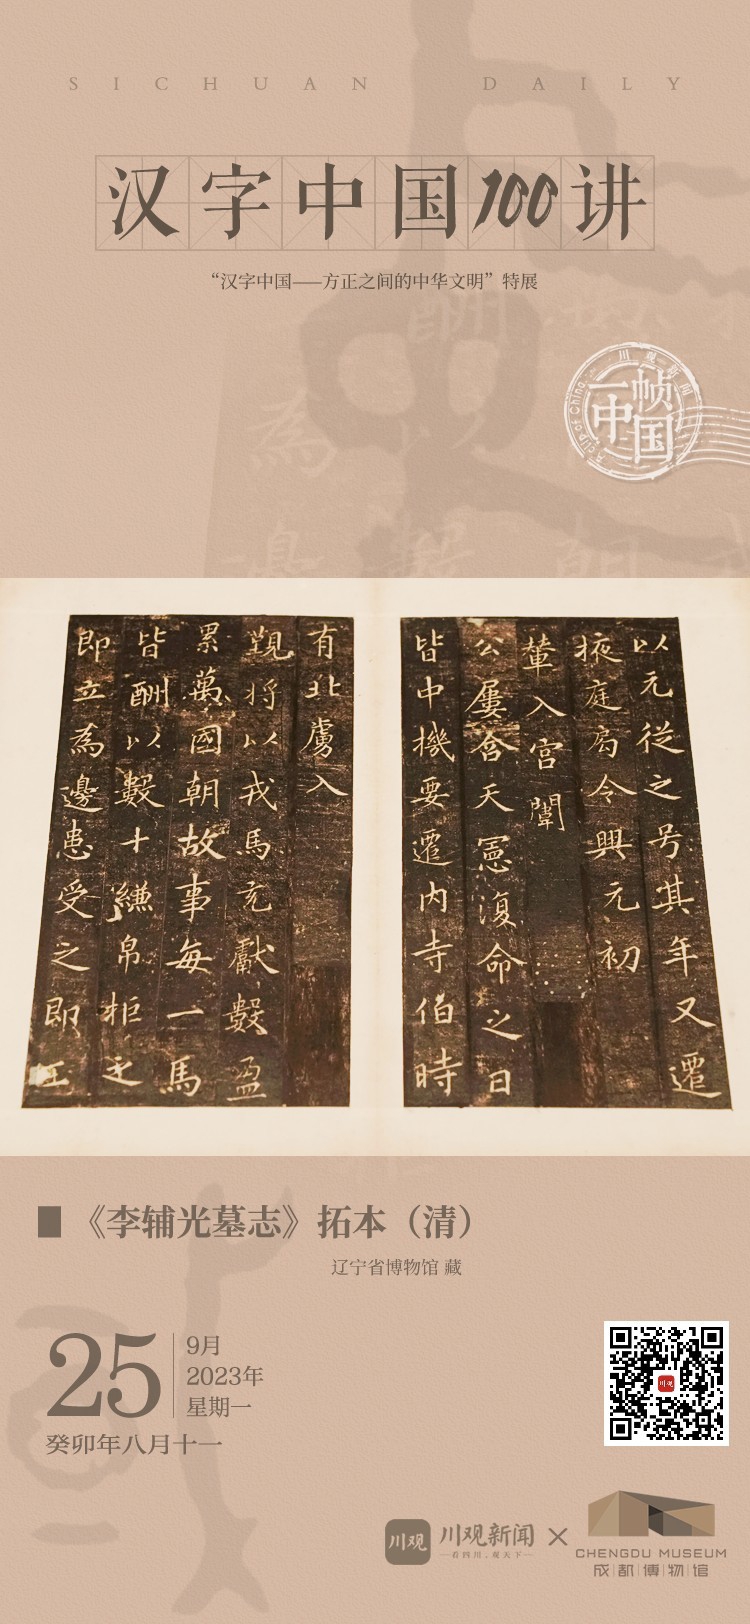 SICHUAN DAILY
汉字中国100讲
“汉字中国——方正之间的中华文明”特展
川观新闻
一帧
中国
A clip of China
以元從之号其年又遷
掖庭局令興元初
輦入宫闈
公屢含天憲復命之日
皆中機要遷内寺伯時
有北虜入
覲将以戎馬充獻數盈
累萬國朝故事每一馬
皆酬以數十縑帛拒之
即立為邊患受之即
《李辅光墓志》拓本（清）
辽宁省博物馆 藏
25
9月
2023年
星期一
癸卯年八月十一
川观
川观新闻
—看四川，观天下—
×
CHENGDU MUSEUM
成都博物馆